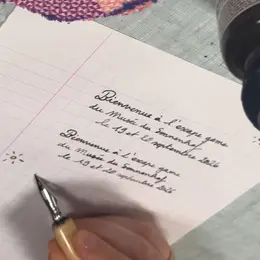 Bienvenue à l'escape game
du Musée du Sonnenhof
le 19 et 20 septembre 2026
Bienvenue à l'escape game
du Musée du Sonnenhof
le 19 et 20 septembre 2026